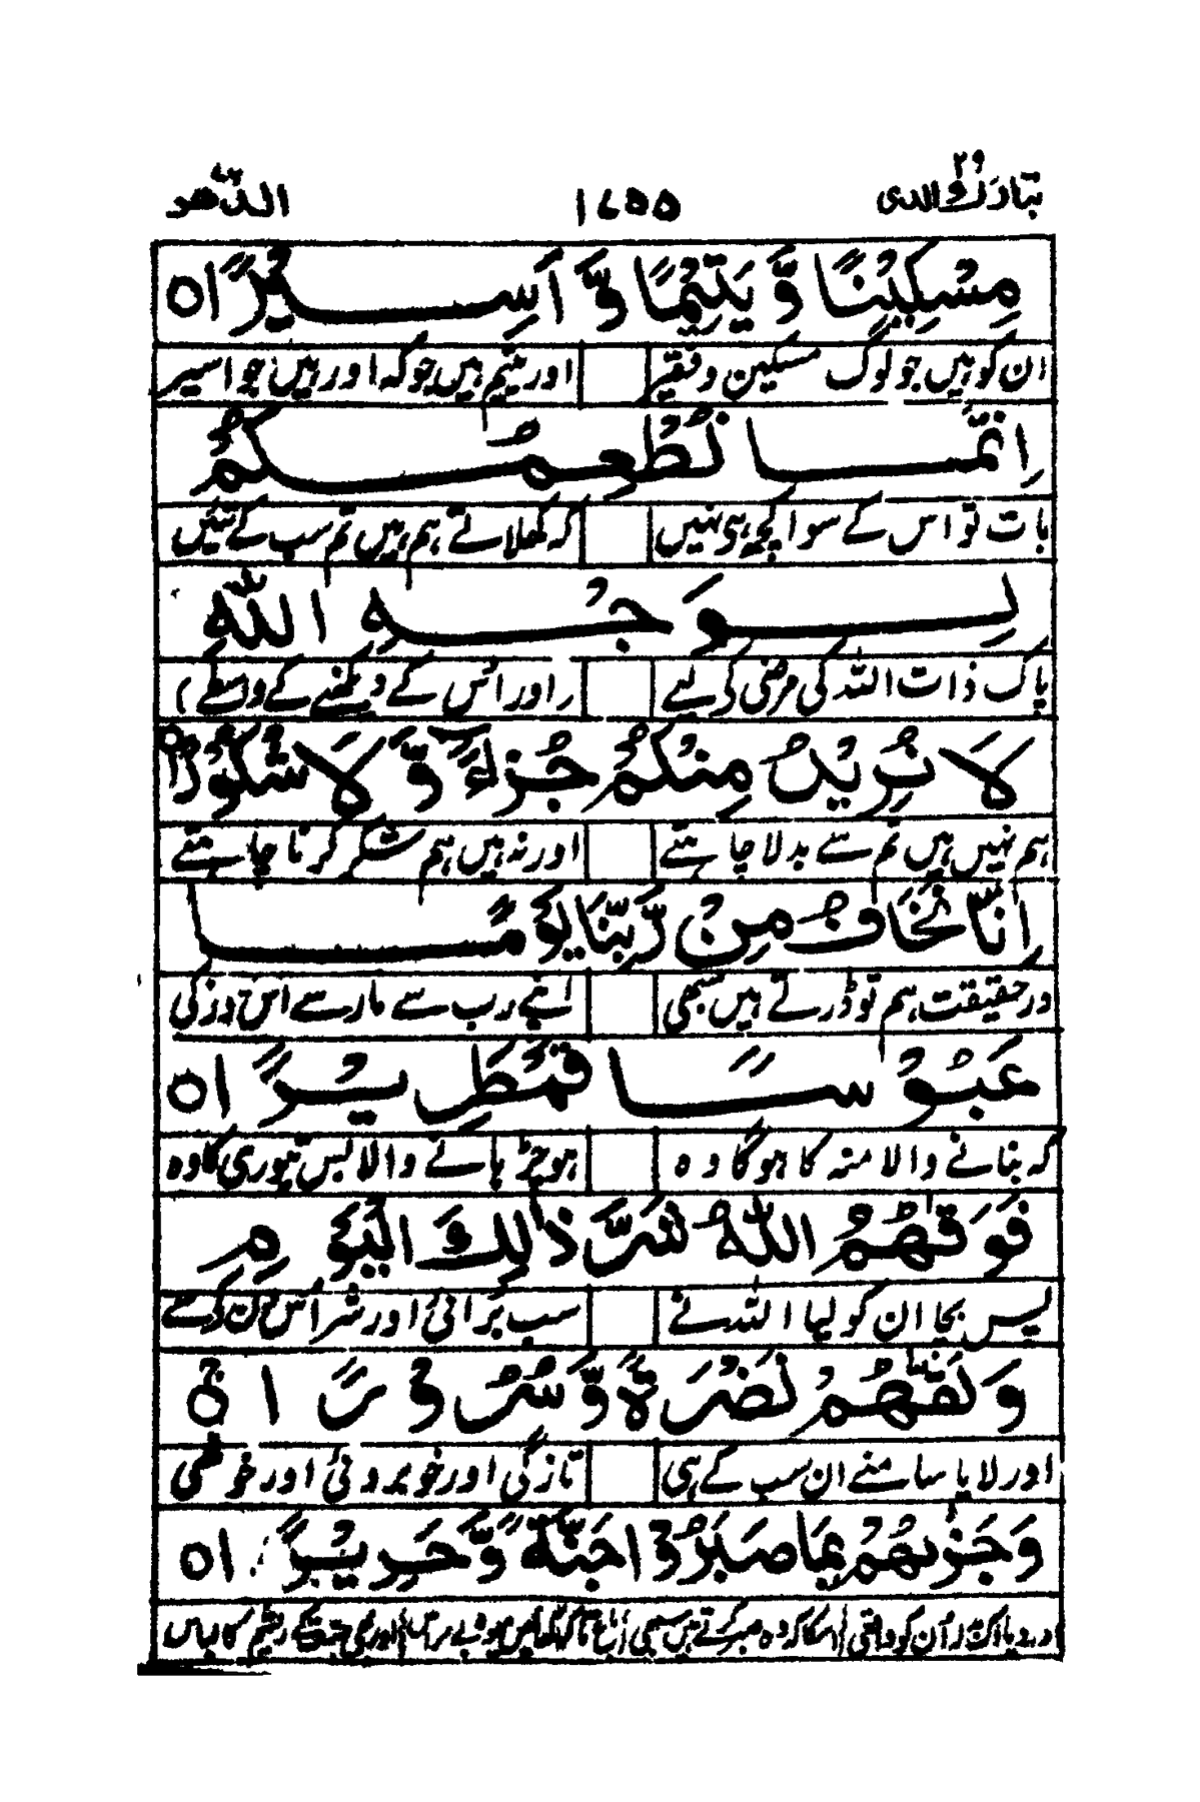 تبارك الذی ٢٩ ١٤٥٥ الدّهر ٧٦
مِسْكِيْنًا وَّ يَتِيْمًا وَّ اَسِيْرًا ٥
ان کو ہیں جو لوگ مسکین و فقیر اور یتیم ہیں جو کہ اور ہیں جو اسیر
اِنَّمَا نُطْعِمُكُمْ
بات تو اس کے سوا کچھ ہی نہیں کہ کھلاتے ہم ہیں تم سب کے تئیں
لِوَجْهِ اللّٰهِ
پاک ذات اللہ کی مرضی کے لیے (اور اُس کے دیکھنے کے واسطے)
لَا نُرِيْدُ مِنْكُمْ جَزَآءً وَّ لَا شُكُوْرًا ٥
ہم نہیں ہیں تم سے بدلا چاہتے اور نہ ہیں ہم شکر کرنا چاہتے
اِنَّا نَخَافُ مِنْ رَّبِّنَا يَوْمًا
درحقیقت ہم تو ڈرتے ہیں سبھی اپنے رب سے مارے اس روز کی
عَبُوْسًا قَمْطَرِيْرًا ٥
کہ بنانے والا منہ کا ہوگا وہ ہو چڑہانے والا بس تیوری کا وہ
فَوَقٰهُمُ اللّٰهُ شَرَّ ذٰلِكَ الْيَوْمِ
پس بچا ان کو لیا اللہ نے سب بُرائی اور شر اُس دن کے سے
وَ لَقّٰهُمْ نَضْرَةً وَّ سُرُوْرًا ٥
اور لایا سامنے ان سب کے ہی تازگی اور خوبروئی اور خوشی
وَ جَزٰىهُمْ بِمَا صَبَرُوْا جَنَّةً وَّ حَرِيْرًا ٥
اور دیا ان کو کہ وہ صبر کرتے ہیں سبھی باغ ریشم کا لباس